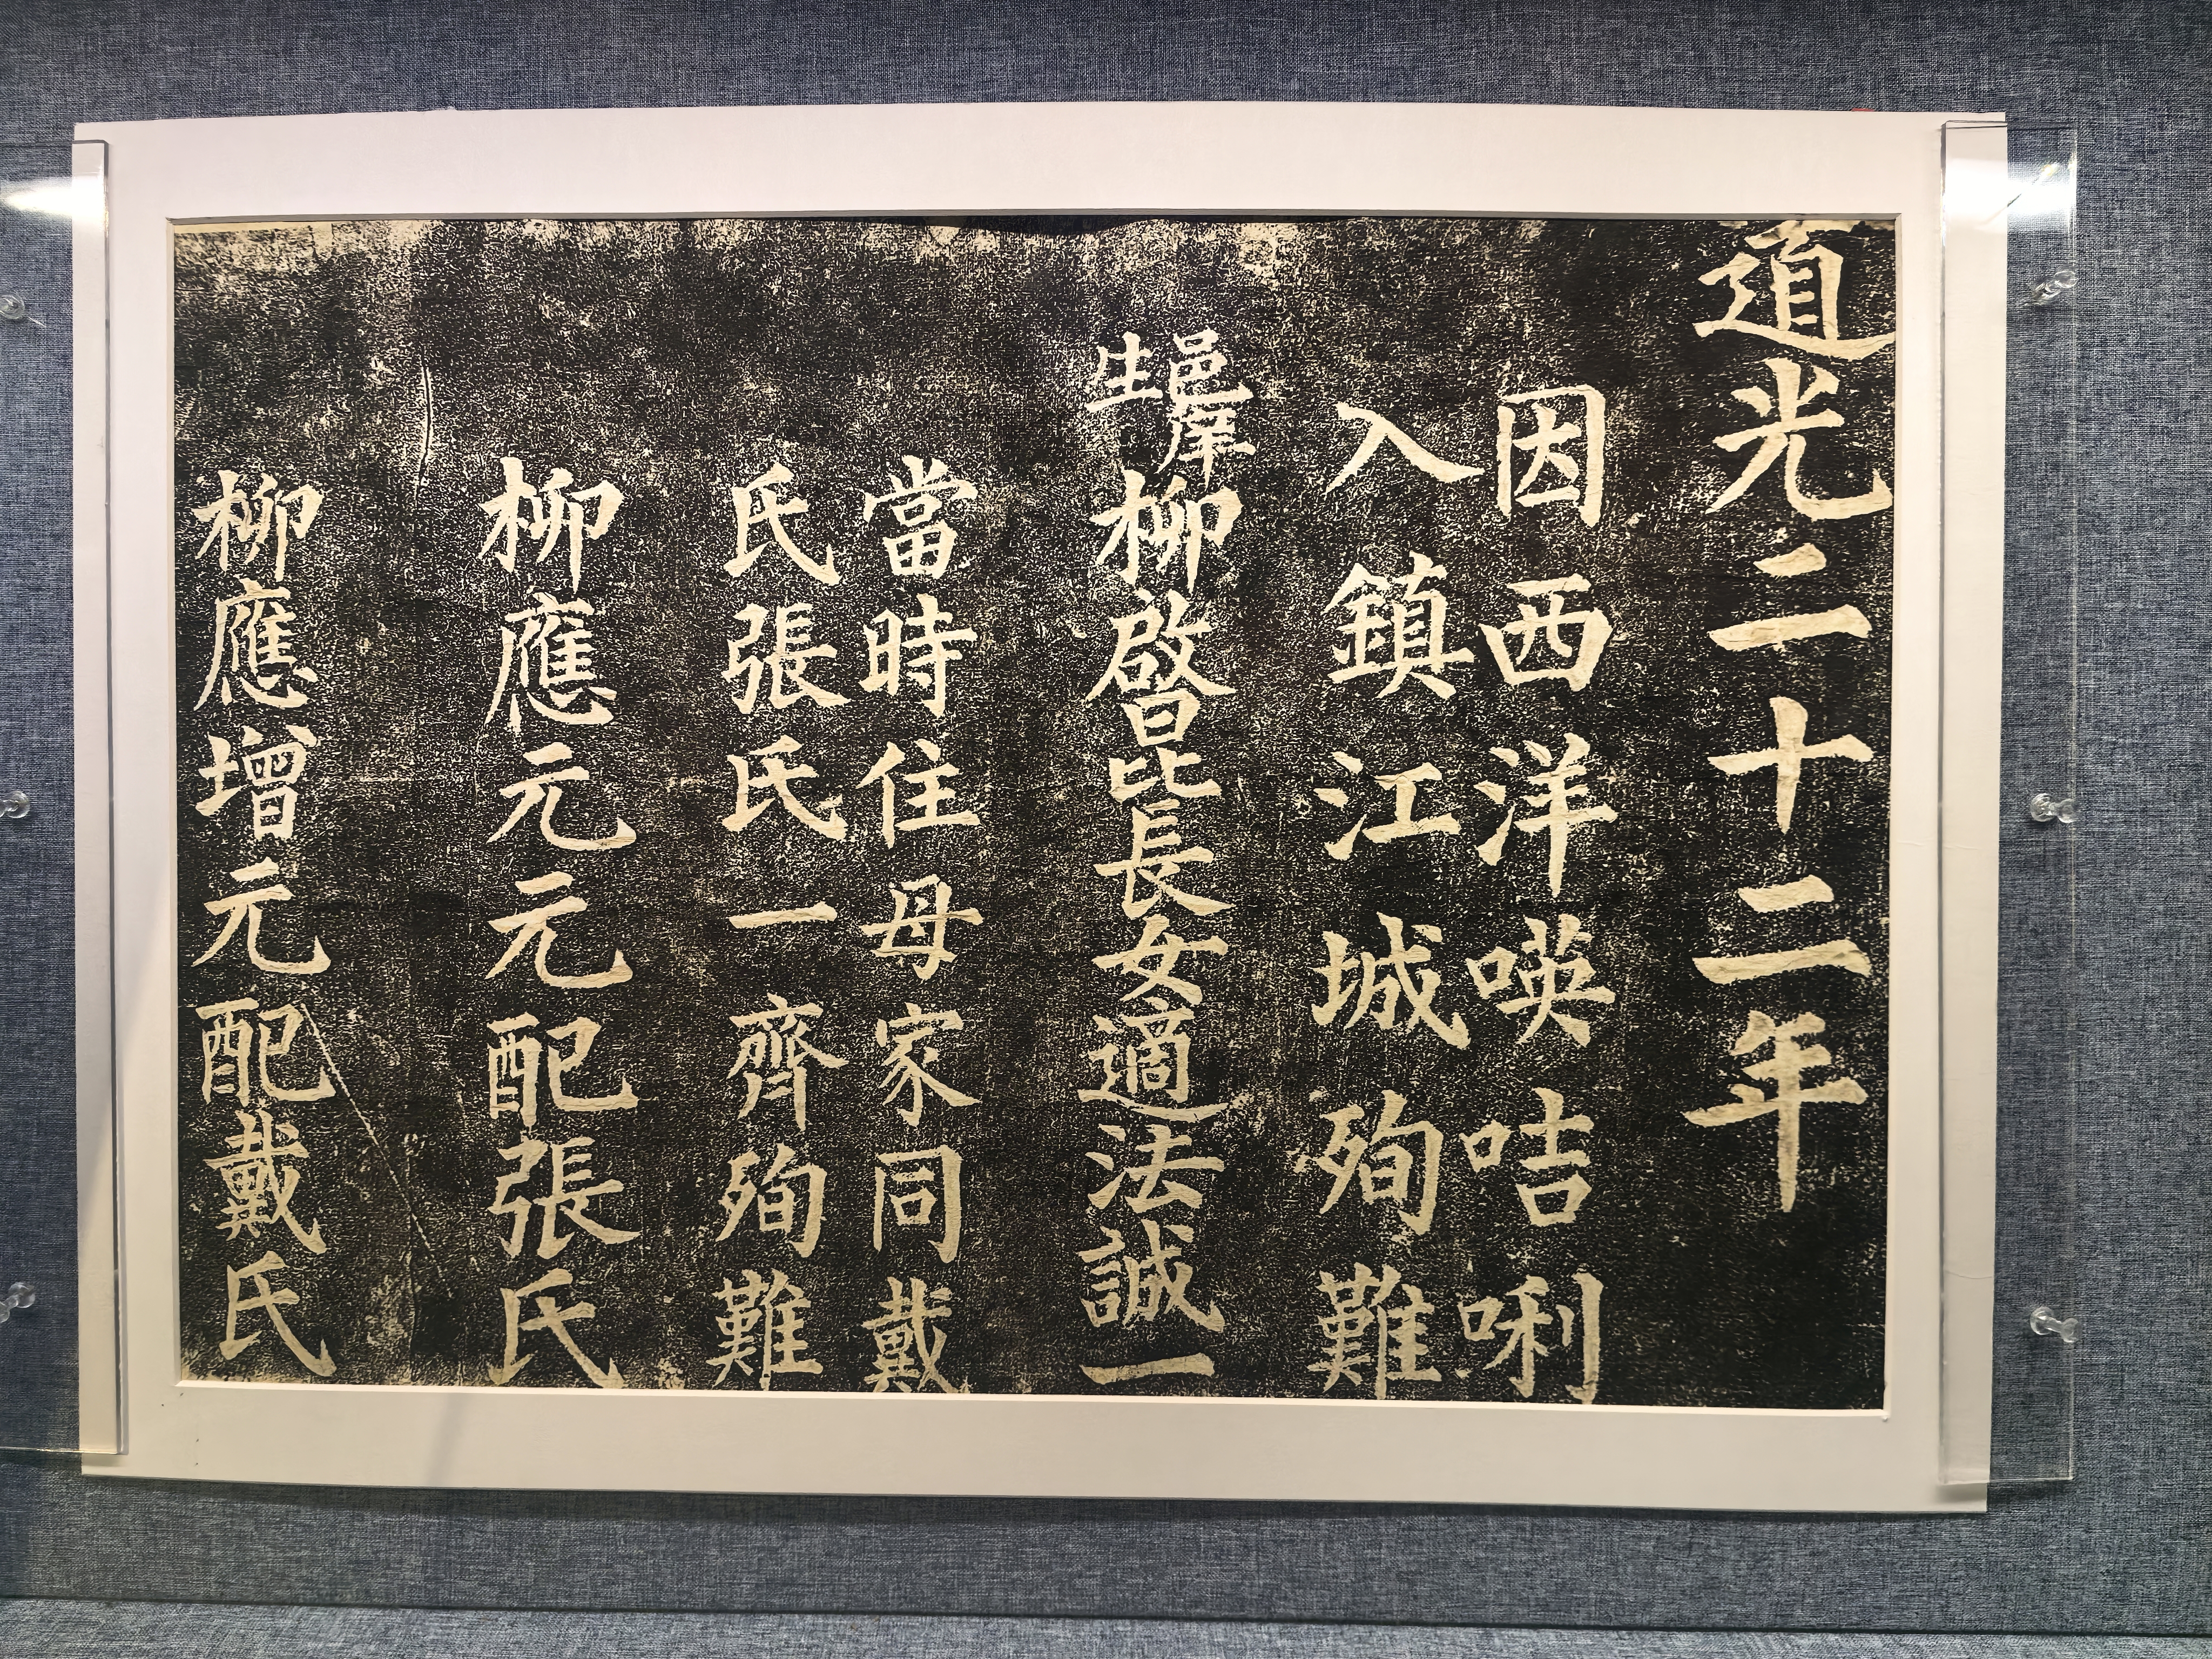 道光二十二年
因西洋𠸄咭唎
入鎮江城殉難
邑庠生柳啟昆長女適法誠一
當時住母家同戴
氏張氏一齊殉難
柳應元元配張氏
柳應增元配戴氏